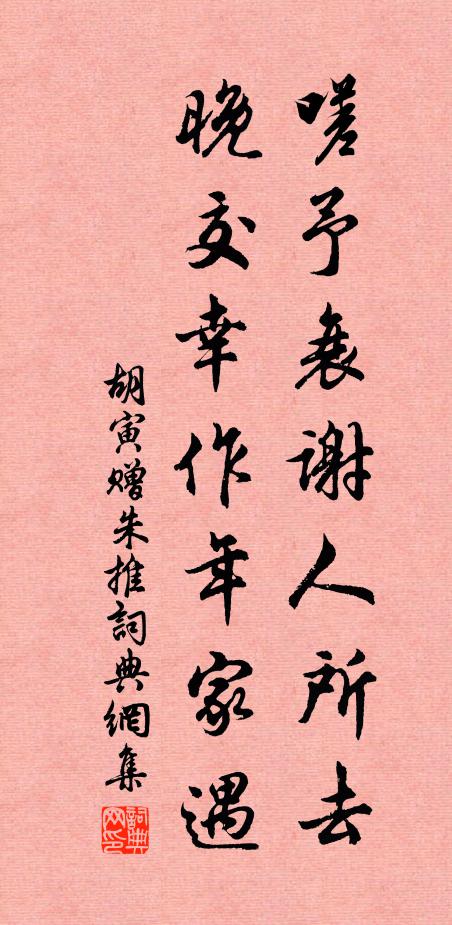 嗟予衰谢人所去
晚交幸作年家遇
胡寅赠朱推詞典網集
詞典网印